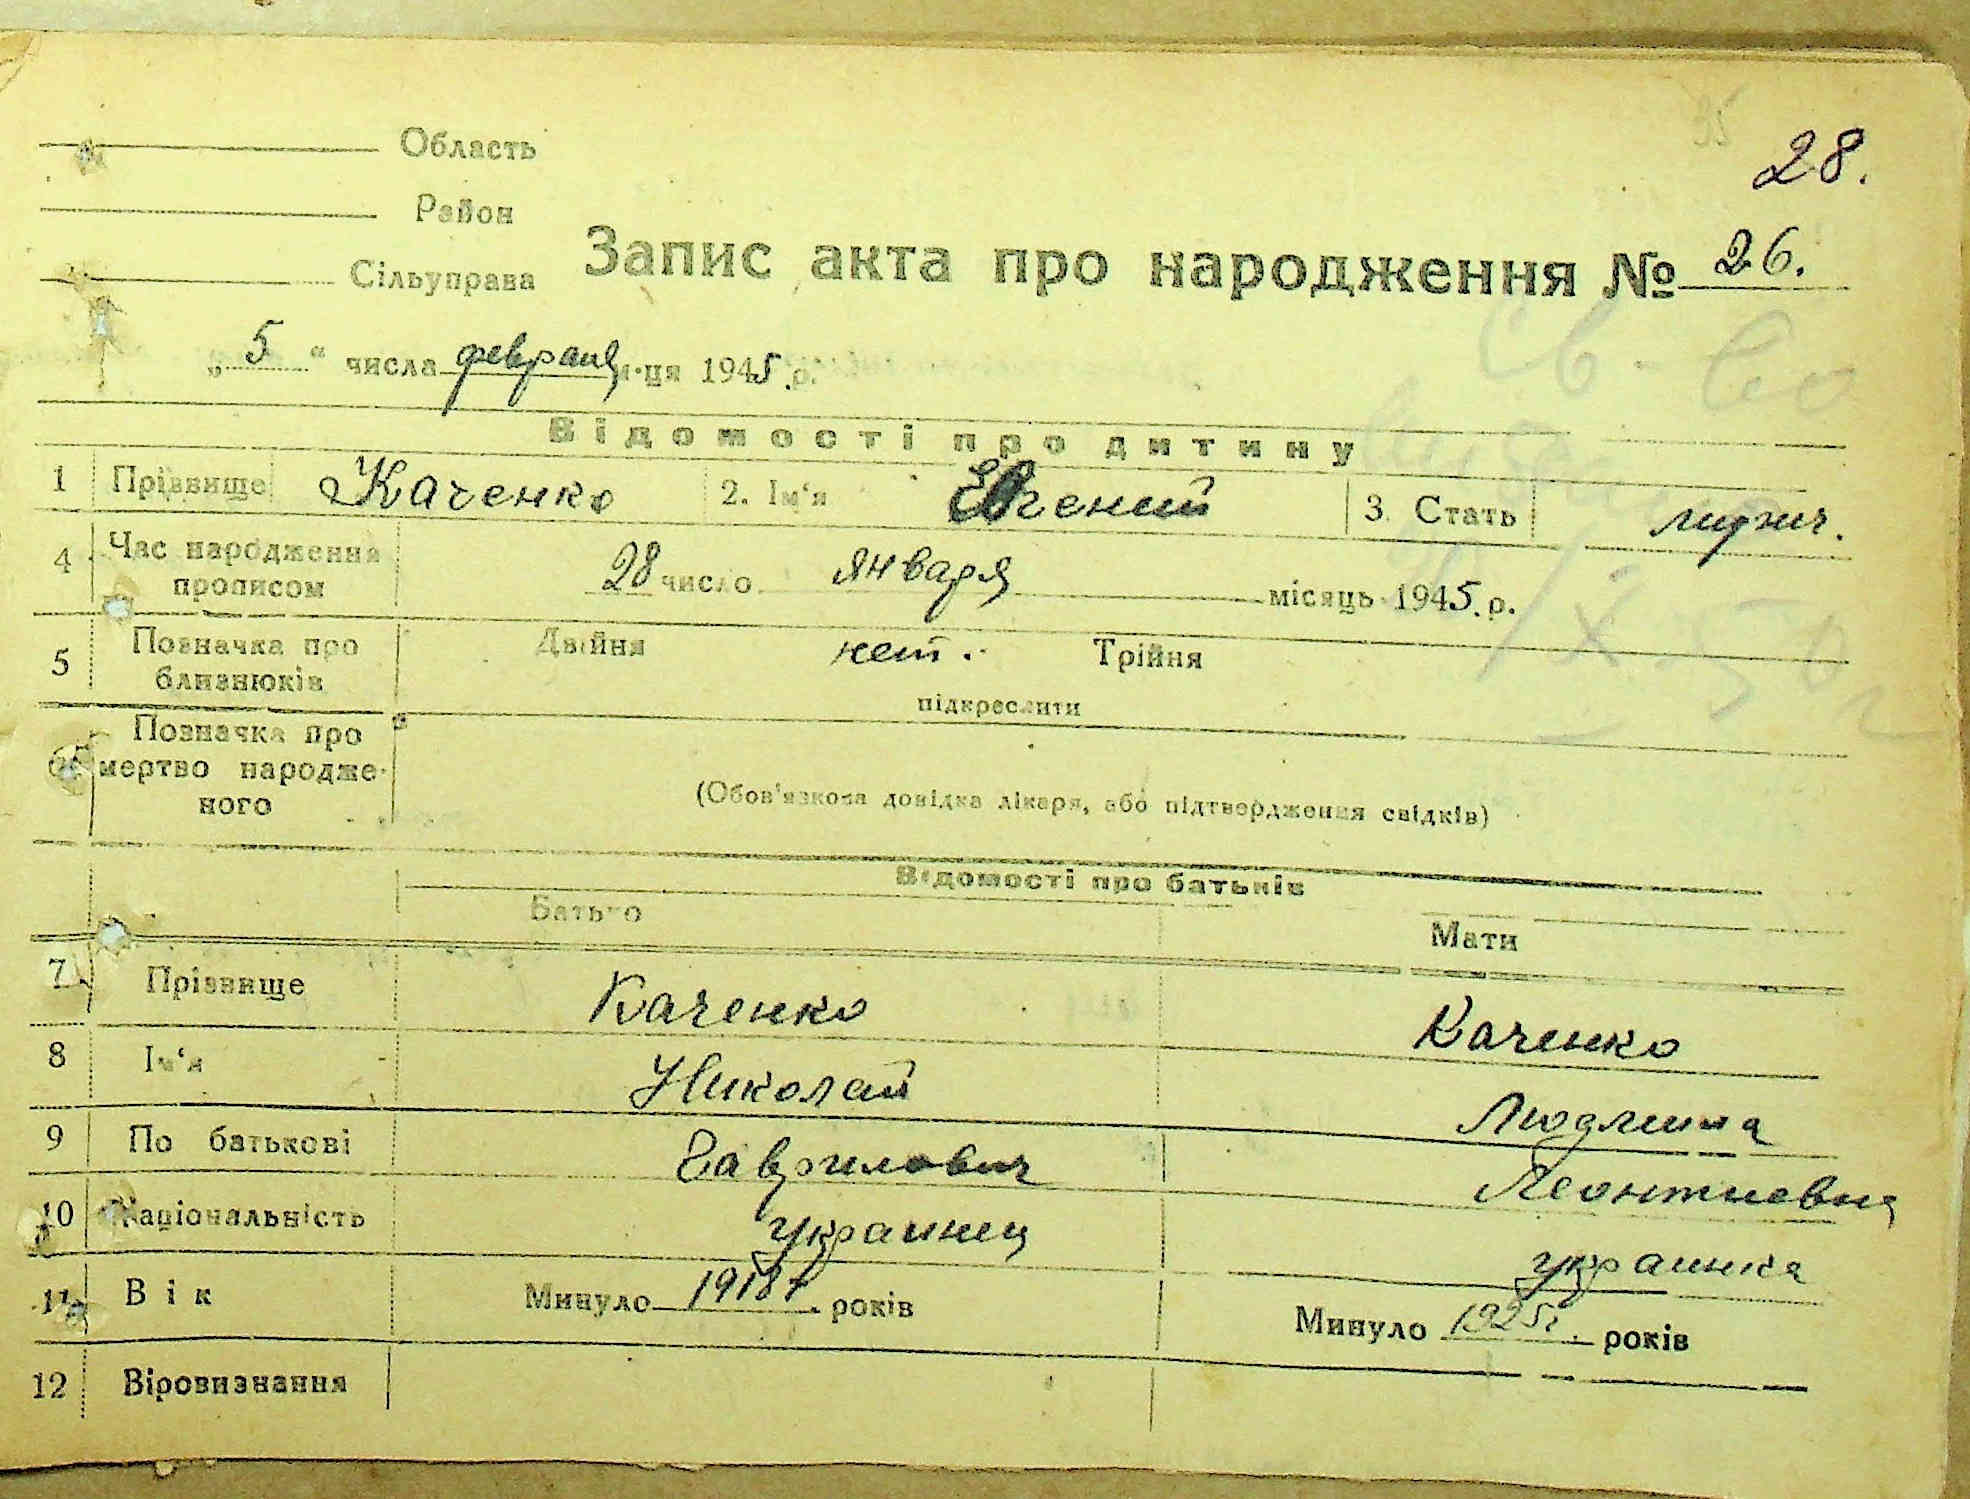 28.
Область
Район
Сільуправа
Запис акта про народження № 26.
„ 5 “ числа февраля м-ця 1945 р.
Відомості про дитину
1 Прізвище Каченко 2. Ім'я Евгений 3. Стать мужич.
4 Час народження прописом 28 число января місяць 1945. р.
5 Позначка про близнюків Двійня нет. Трійня
підкреслити
6 Позначка про мертво народженого
(Обов'язкова довідка лікаря, або підтвердження свідків)
Відомості про батьків
Батько Мати
7 Прізвище Каченко Каченко
8 Ім'я Николай Людмила
9 По батькові Гаврилович Леонтиевна
10 Національність украинец украинка
11 Вік Минуло 1918 г. років Минуло 1925 г. років
12 Віровизнання